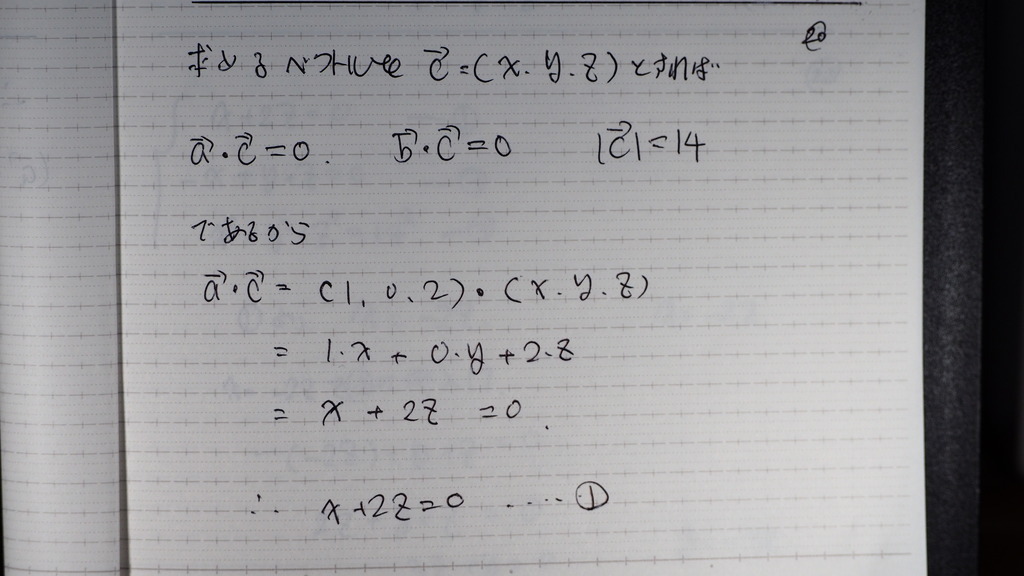 求めるベクトルを c⃗=(x.y.z)とすれば‥
a⃗・c⃗=0. b⃗・c⃗=0 |c⃗|=14
であるから
a⃗・c⃗= (1,0.2)・(x.y.z)
= 1・x + 0・y + 2・z
= x + 2z =0.
∴ x+2z=0 ‥‥①